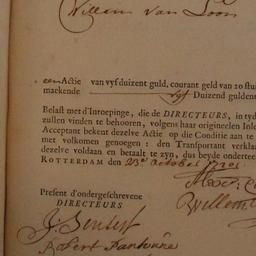 Willem van Loon
een Actie van vyf duizent guld, courant geld van 20 stui
makende vyf Duizend gulden
Belast met d'Inroepinge, die de DIRECTEURS, in tyd
zullen vinden te behooren, volgens haar origineelen Inle
Acceptant bekent dezelve Actie op die Conditie aan te
met volkomen genoegen: den Transportant verklaa
dezelve voldaan en betaalt te zyn, dus beyde onderteek
ROTTERDAM den 23e October
Present d'ondergeschrevene
DIRECTEURS
Willem
Robert